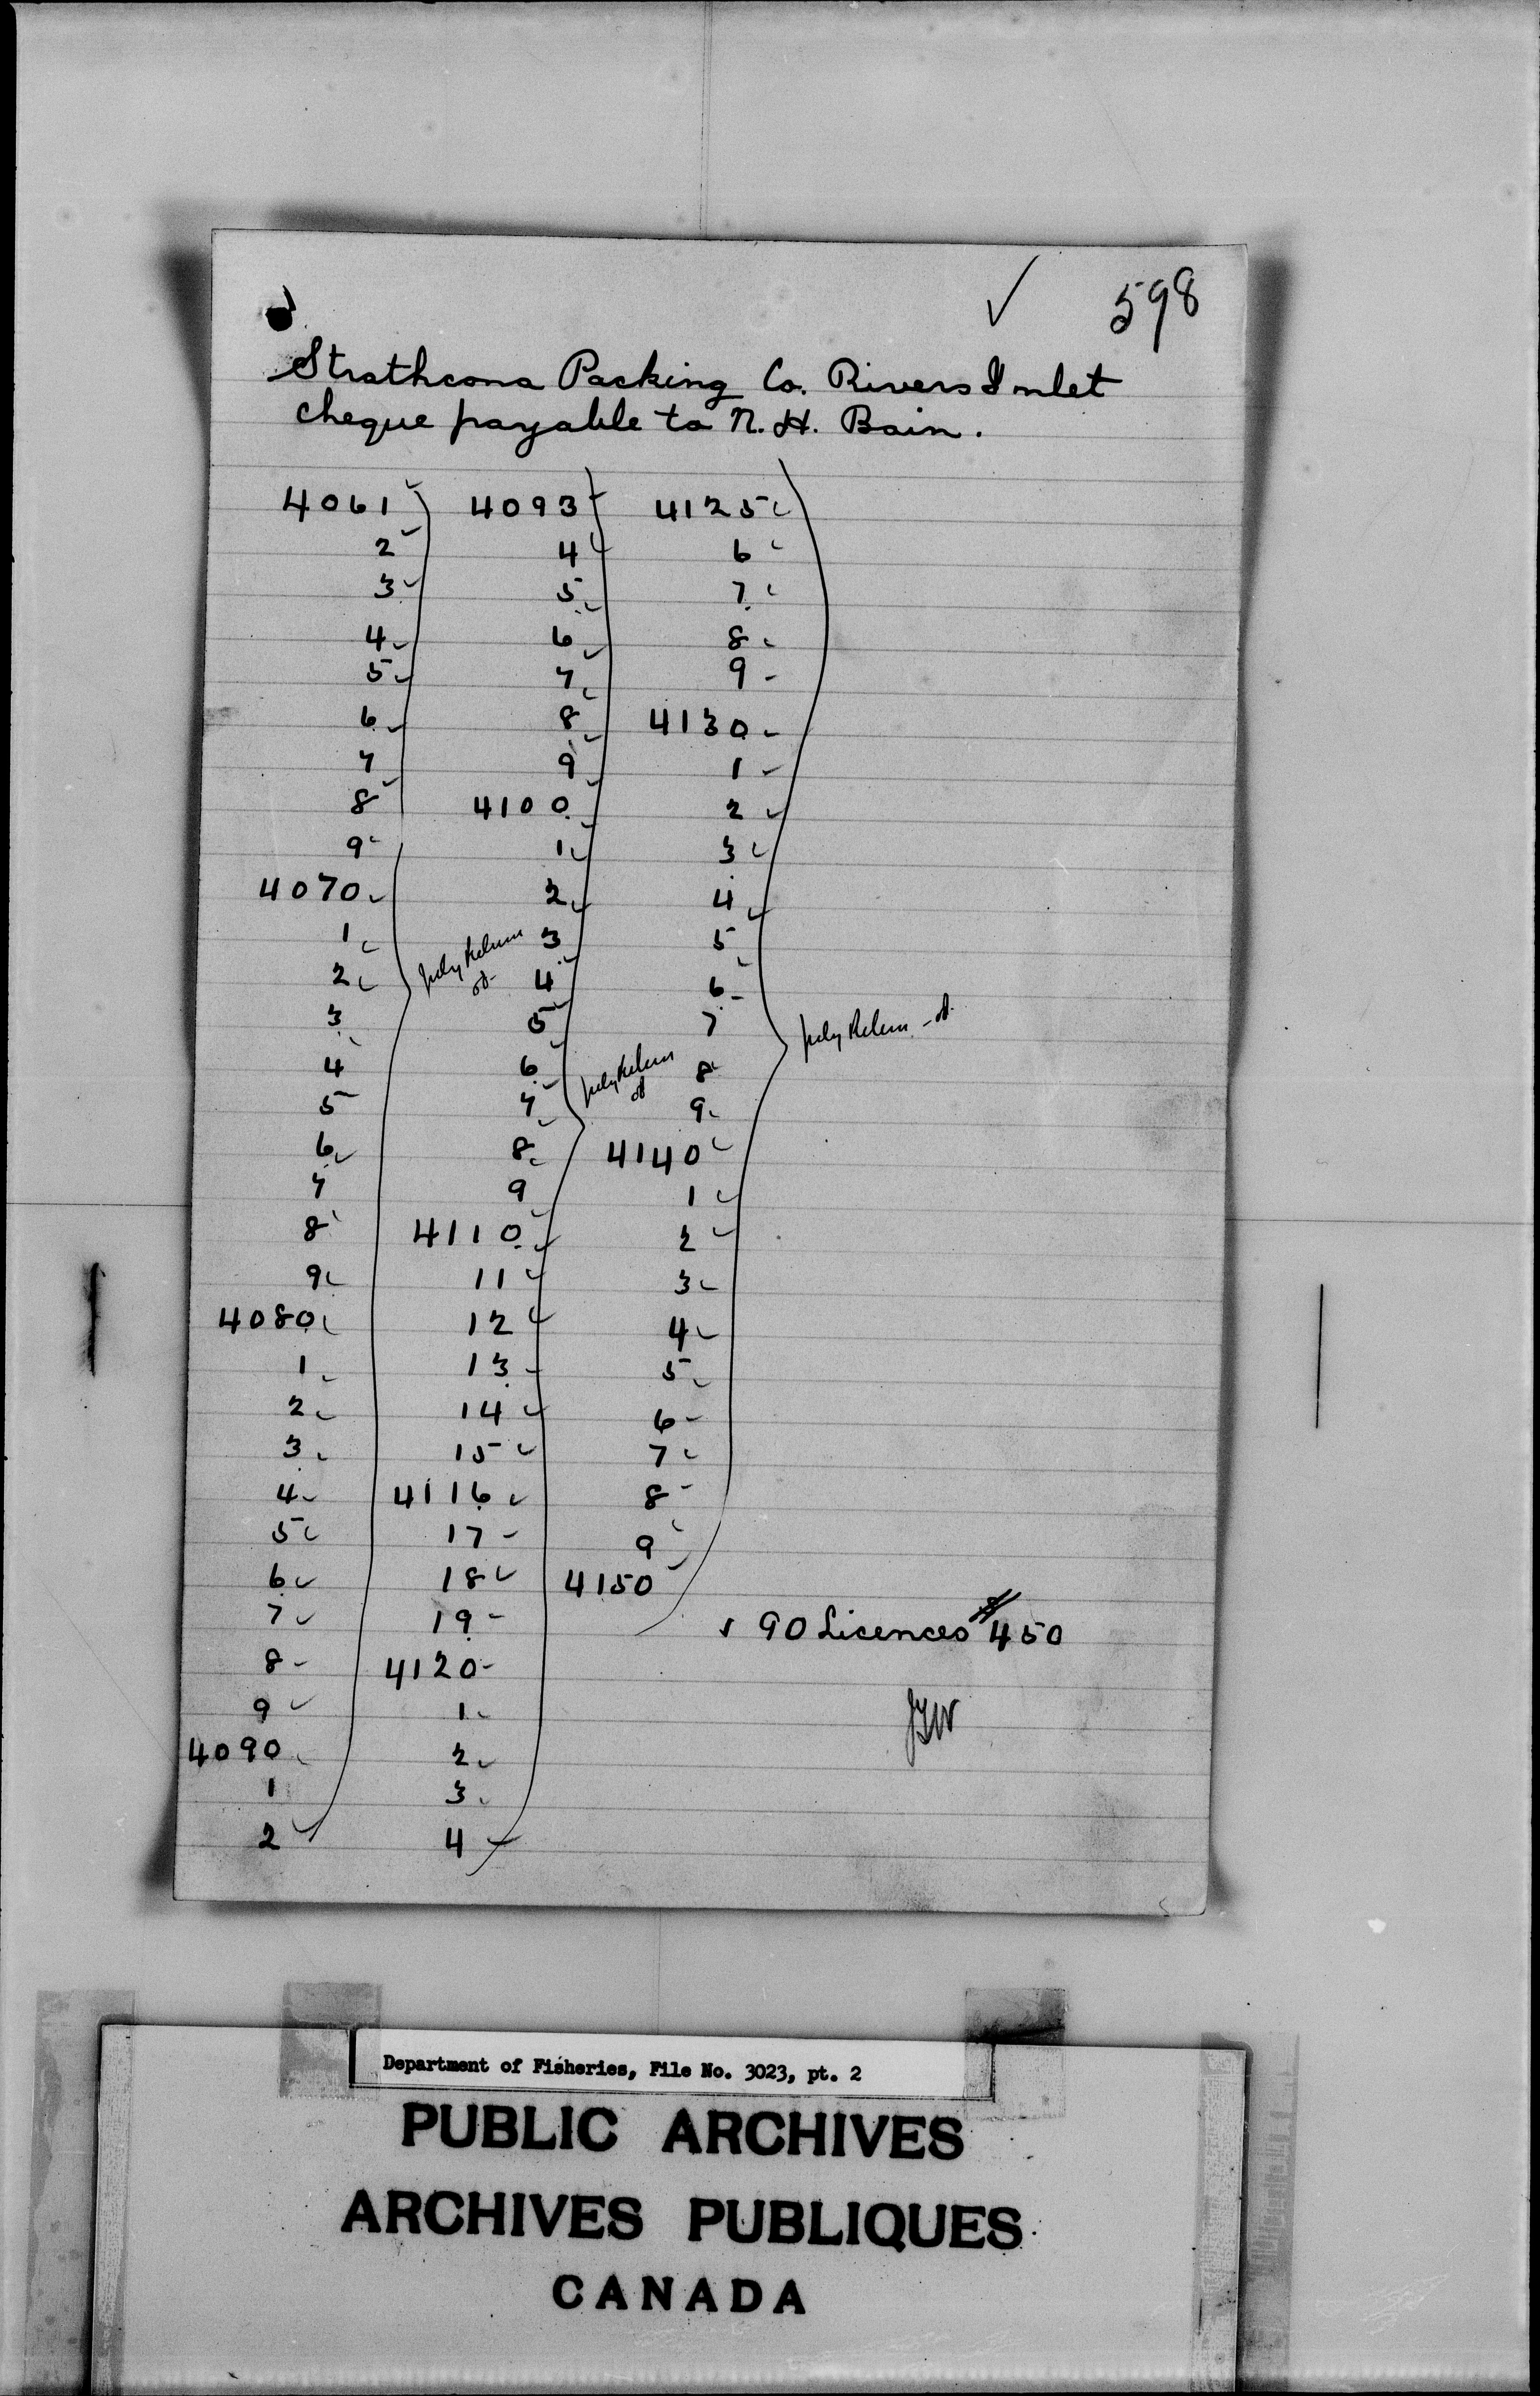 ✓ 598
Strathcona Packing Co. Rivers Inlet
cheque payable to N. H. Bain.
4061 4093 4125
2 4 6
3 5 7
4 6 8
5 7 9
6 8 4130
7 9 1
8 4100 2
9 1 3
4070 2 4
1 July Return 3 5
2 4 6
3 5 7 July Return
4 6 July Return 8
5 7 9
6 8 4140
7 9 1
8 4110 2
9 11 3
4080 12 4
1 13 5
2 14 6
3 15 7
4 4116 8
5 17 9
6 18 4150
7 19 ✓ 90 Licences $450
8 4120
9 1
4090 2
1 3
2 4
Department of Fisheries, File No. 3023, pt. 2
PUBLIC ARCHIVES
ARCHIVES PUBLIQUES
CANADA